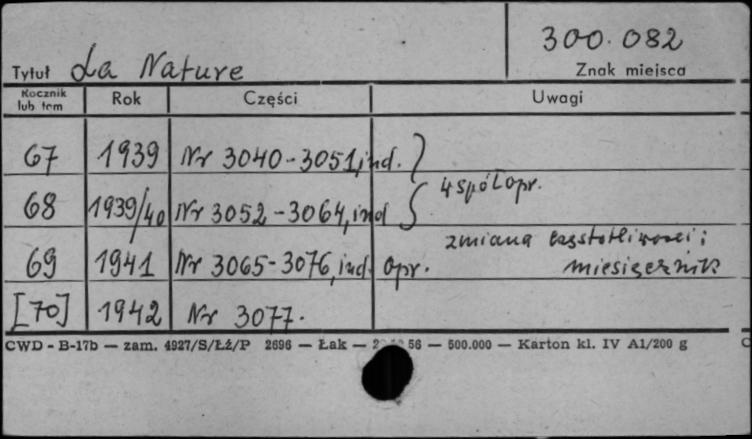 300.082
Tytuł La Nature Znak miejsca
Rocznik lub tom Rok Części Uwagi
67 1939 Nr 3040-3051, ind. }
4 współopr.
68 1939/40 Nr 3052-3064, ind }
zmiana częstotliwości;
69 1941 Nr 3065-3076, ind. opr. miesięcznik
[70] 1942 Nr 3077.
CWD - B-17b — zam. 4927/S/ŁŻ/P 2696 — Łak — 56 — 500.000 — Karton kl. IV A1/200 g